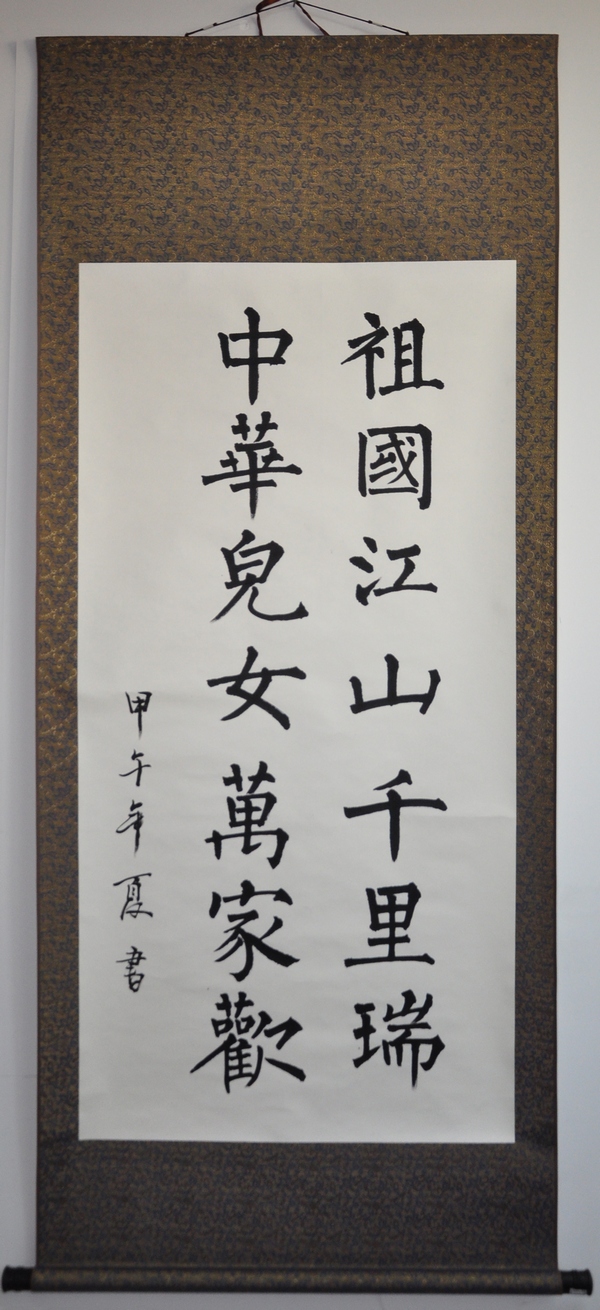 祖國江山千里瑞
中華兒女萬家歡
甲午年夏書